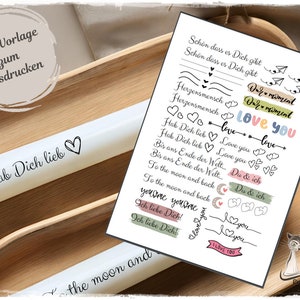 Vorlage
zum
sdrucken
k Dich lieb
To the moon and
Schön dass es Dich gibt
Schön dass es Dich gibt
Herzensmensch
Herzensmensch
Hab Dich lieb
Hab Dich lieb
Bis ans Ende der Welt
Bis ans Ende der Welt
To the moon and back
To the moon and back
you & me you & me
Ich liebe Dich!
Ich liebe Dich!
love you
Du & ich
Du & ich
LOVE YOU
love love
Love you
Love you
I love you
I love you